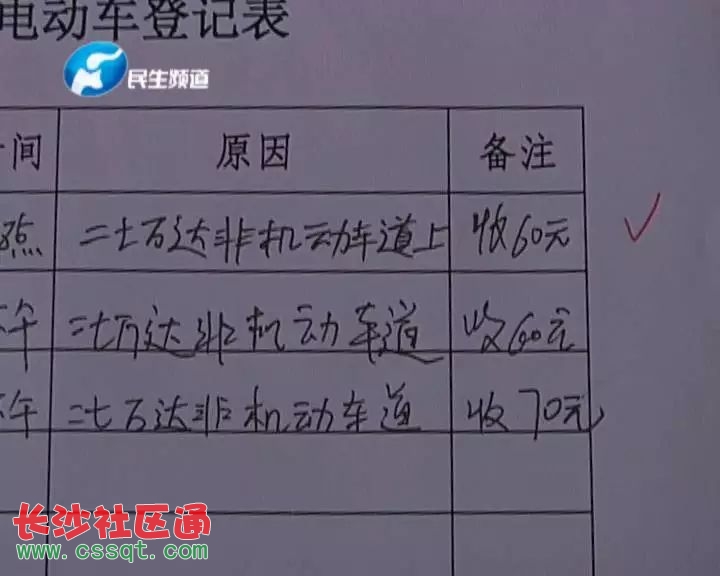 电动车登记表
民生频道
间 原因 备注
点 二七万达非机动车道上 收60元
午 二七万达非机动车道 收60元
午 二七万达非机动车道 收70元
长沙社区通
www.cssqt.com